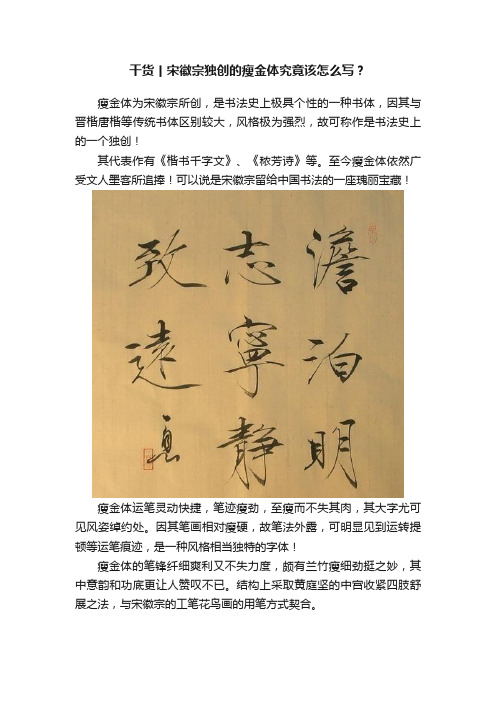 干货丨宋徽宗独创的瘦金体究竟该怎么写？
瘦金体为宋徽宗所创，是书法史上极具个性的一种书体，因其与
晋楷唐楷等传统书体区别较大，风格极为强烈，故可称作是书法史上
的一个独创！
其代表作有《楷书千字文》、《秾芳诗》等。至今瘦金体依然广
受文人墨客所追捧！可以说是宋徽宗留给中国书法的一座瑰丽宝藏！
澹泊明
志寧靜
致遠
瘦金体运笔灵动快捷，笔迹瘦劲，至瘦而不失其肉，其大字尤可
见风姿绰约处。因其笔画相对瘦硬，故笔法外露，可明显见到运转提
顿等运笔痕迹，是一种风格相当独特的字体！
瘦金体的笔锋纤细爽利又不失力度，颇有兰竹瘦细劲挺之妙，其
中意韵和功底更让人赞叹不已。结构上采取黄庭坚的中宫收紧四肢舒
展之法，与宋徽宗的工笔花鸟画的用笔方式契合。